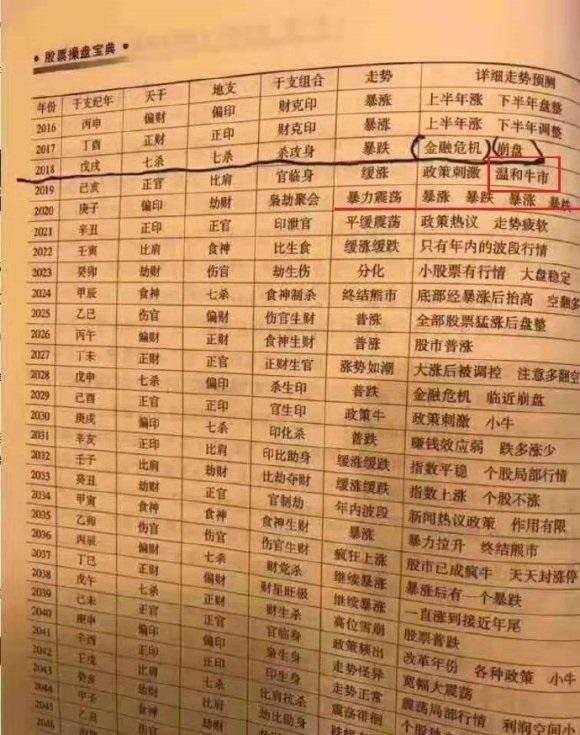 • 股票操盘宝典 •
年份 干支纪年 天干 地支 干支组合 走势 详细走势预测
2016 丙申 偏财 偏印 财克印 暴涨 上半年涨 下半年盘整
2017 丁酉 正财 正印 财克印 暴涨 上半年涨 下半年调整
2018 戊戌 七杀 七杀 杀攻身 暴跌 金融危机 崩盘
2019 己亥 正官 比肩 官临身 缓涨 政策刺激 温和牛市
2020 庚子 偏印 劫财 枭劫聚会 暴力震荡 暴涨 暴跌 暴涨 暴跌
2021 辛丑 正印 正官 印泄官 平缓震荡 政策热议 走势疲软
2022 壬寅 比肩 食神 比生食 缓涨缓跌 只有年内的波段行情
2023 癸卯 劫财 伤官 劫生伤 分化 小股票有行情 大盘稳定
2024 甲辰 食神 七杀 食神制杀 终结熊市 底部经暴涨后抬高 空翻多
2025 乙巳 伤官 偏财 伤官生财 普涨 全部股票猛涨后盘整
2026 丙午 偏财 正财 食神生财 普涨 股市普涨
2027 丁未 正财 正官 正财生官 涨势如潮 大涨后被调控 注意多翻空
2028 戊申 七杀 偏印 杀生印 普跌 金融危机 临近崩盘
2029 己酉 正官 正印 官生印 政策牛 政策刺激 小牛
2030 庚戌 偏印 七杀 印化杀 普跌 赚钱效应弱 跌多涨少
2031 辛亥 正印 比肩 印比助身 缓涨缓跌 指数平稳 个股局部行情
2032 壬子 比肩 劫财 比劫夺财 缓涨缓跌 指数上涨 个股不涨
2033 癸丑 劫财 正官 官制劫 年内波段 新闻热议政策 作用有限
2034 甲寅 食神 食神 食神生财 暴涨 暴力拉升 终结熊市
2035 乙卯 伤官 伤官 伤官生财 疯狂上涨 股市已成疯牛 天天封涨停
2036 丙辰 偏财 七杀 财党杀 继续暴涨 暴涨后有一个暴跌
2037 丁巳 正财 偏财 财星旺极 继续暴涨 一直涨到接近年尾
2038 戊午 七杀 正财 财生杀 高位雪崩 股票普跌
2039 己未 正官 正官 官临身 政策频出 改革年份 各种政策 小牛
2040 庚申 偏印 偏印 枭生身 走势怪异 宽幅大震荡
2041 辛酉 正印 正印 印生身 走势正常 震荡局部行情 利润空间小
2042 壬戌 比肩 七杀 比肩抗杀 震荡徘徊
2043 癸亥 劫财
2044 甲子
2045 乙丑
2046